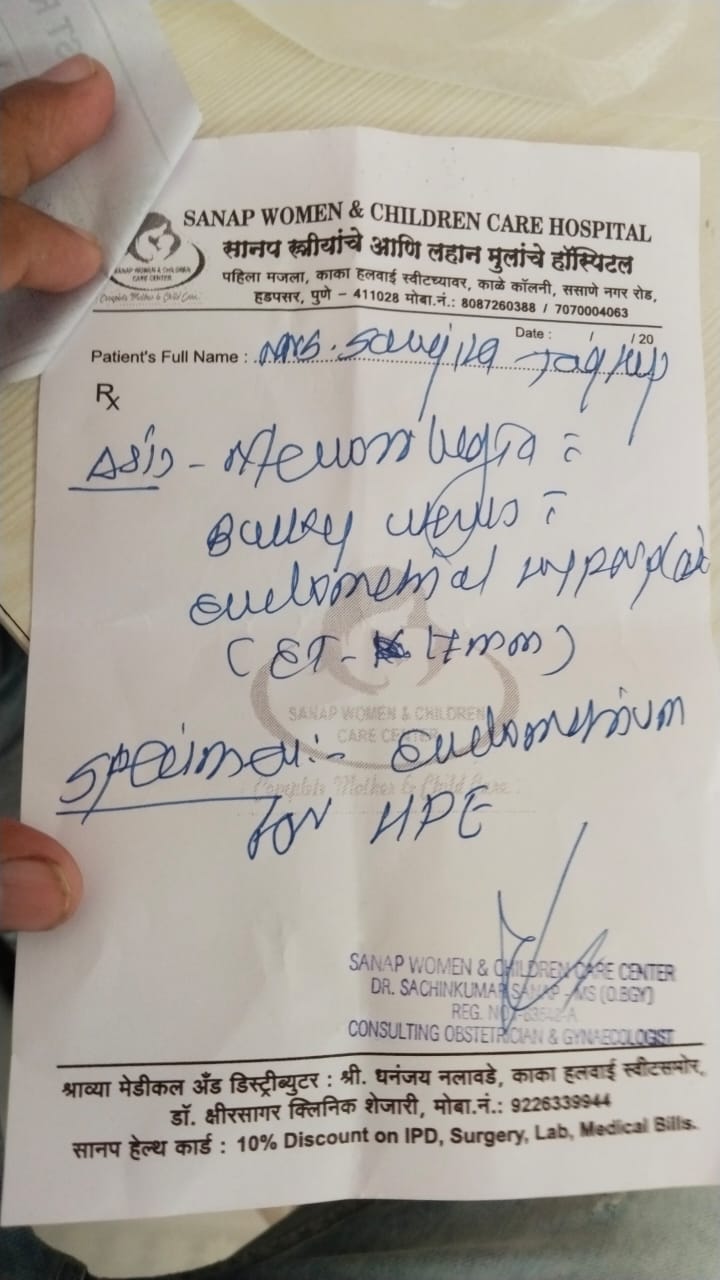 SANAP WOMEN & CHILDREN CARE HOSPITAL
सानप स्त्रीयांचे आणि लहान मुलांचे हॉस्पिटल
पहिला मजला, काका हलवाई स्वीटच्यावर, काळे कॉलनी, ससाणे नगर रोड,
हडपसर, पुणे - 411028 मोबा.नं.: 8087260388 / 7070004063
SANAP WOMEN & CHILDREN
CARE CENTER
Complete Mother & Child Care
Date : / / 20
Patient's Full Name : Mrs.
Rx
- Menorrhagia =
Bulky uterus =
endometrial
(ET- 17mm)
Specimen:- endometrium
for HPE
SANAP WOMEN & CHILDREN
CARE CENTER
Complete Mother & Child Care
SANAP WOMEN & CHILDREN CARE CENTER
DR. SACHINKUMAR SANAP MS (O.BGY)
REG. NO
CONSULTING OBSTETRICIAN & GYNAECOLOGIST
श्राव्या मेडीकल अँड डिस्ट्रीब्युटर : श्री. धनंजय नलावडे, काका हलवाई स्वीटसमोर,
डॉ. क्षीरसागर क्लिनिक शेजारी, मोबा.नं.: 9226339944
सानप हेल्थ कार्ड : 10% Discount on IPD, Surgery, Lab, Medical Bills.